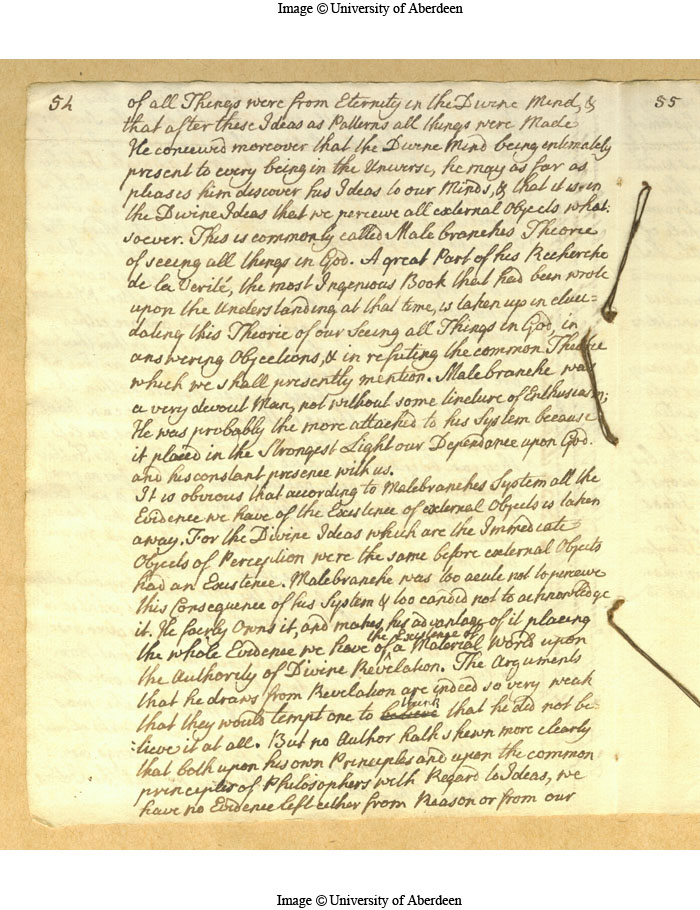 Image © University of Aberdeen
54
55
of all Things were from Eternity in the Divine Mind, &
that after these Ideas as Patterns all things were Made
He conceived moreover that the Divine Mind being intimately
present to every being in the Universe, he may as far as
pleases him discover his Ideas to our Minds, & that it is in
the Divine Ideas that we perceive all external Objects what:
soever. This is commonly called Malebranches Theorie
of seeing all things in God. A great Part of his Recherche
de la Verité, the most Ingenious Book that had been wrote
upon the Understanding at that time, is taken up in eluci=
dating this Theorie of our Seeing all Things in God, in
answering Objections, & in refuting the common Theorie
which we shall presently mention. Malebranche was
a very devout Man, not without some tincture of Enthusiasm;
He was probably the more attached to his System because
it placed in the Strongest Light our Dependance upon God.
and his constant presence with us.
It is obvious that according to Malebranches System all the
Evidence we have of the Existence of external Objects is taken
away. For the Divine Ideas which are the Immediate
Objects of Perception were the same before external Objects
had an Existence. Malebranche was too acute not to perceive
this Consequence of his System & too candid not to acknowledge
it. He fairly Owns it, and makes his advantage of it placing
the Existence of
the whole Evidence we have of a Material World upon
the Authority of Divine Revelation. The Arguments
that he draws from Revelation are indeed so very weak
think
that they would tempt one to believe that he did not be
:lieve it at all. But no Author hath shewn more clearly
that both upon his own Principles and upon the common
principles of Philosophers with Regard to Ideas, we
have no Evidence left either from Reason or from our
Image © University of Aberdeen